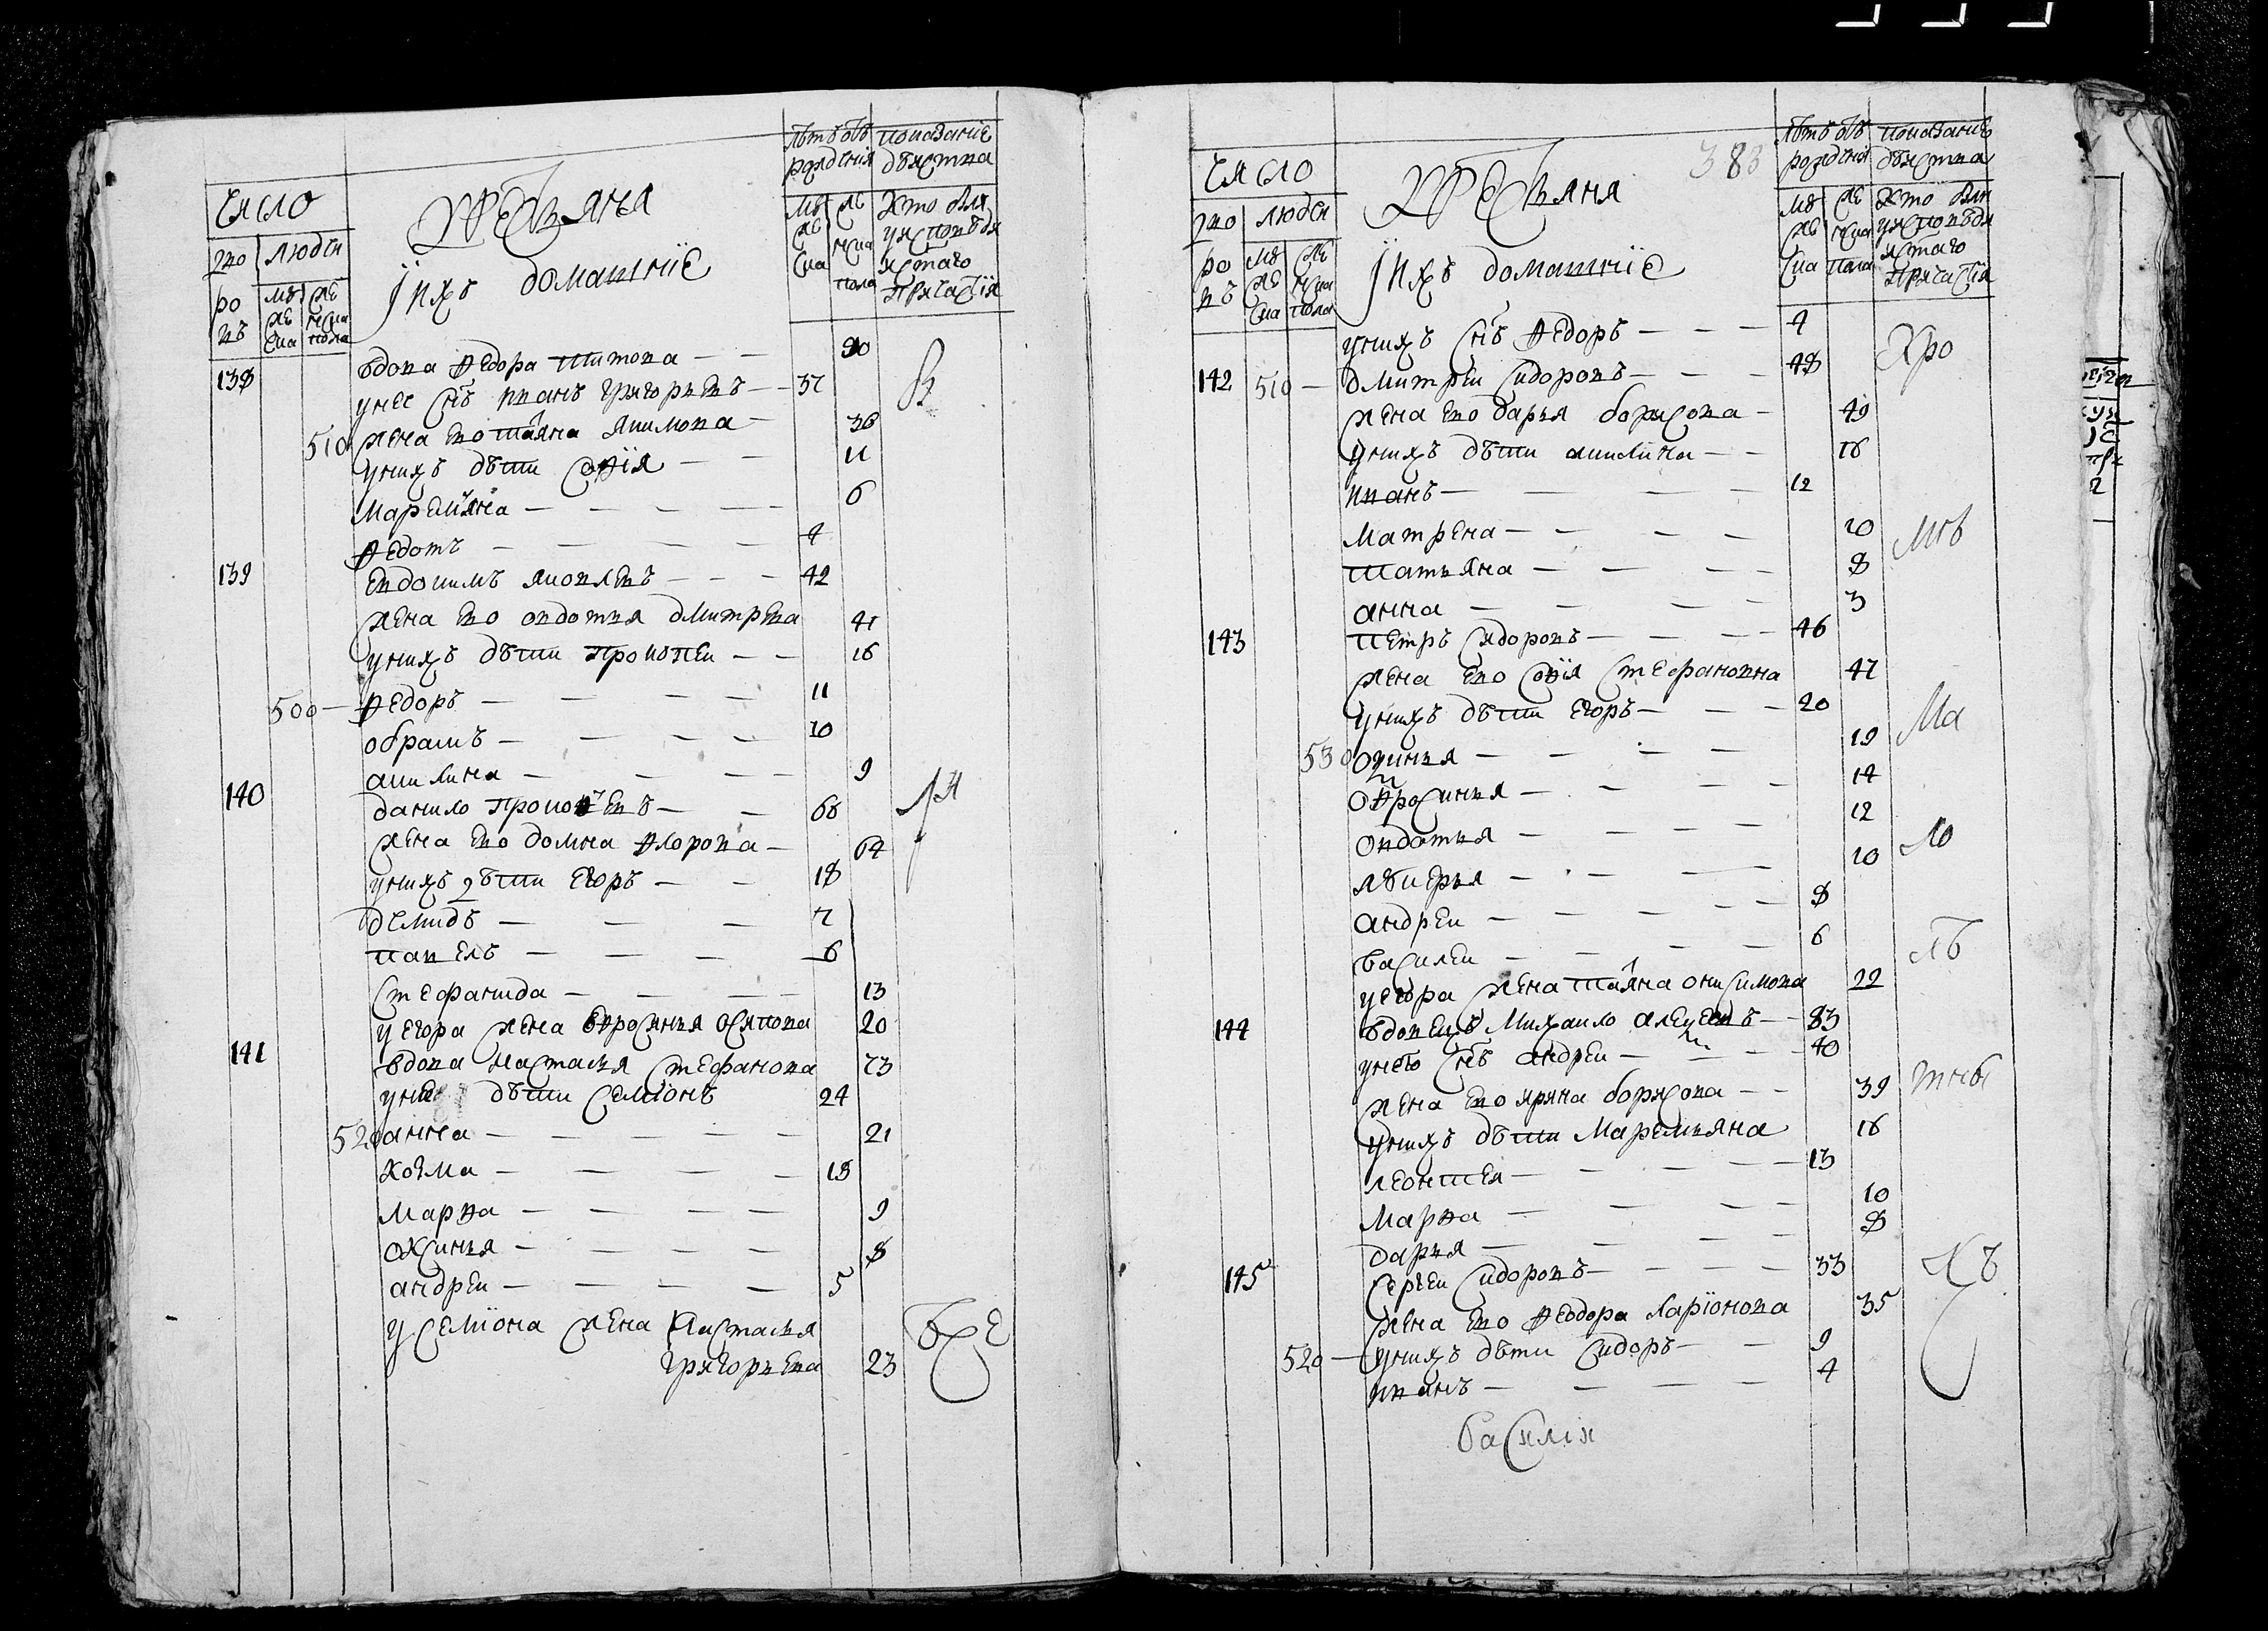 число
дворовъ
людеи
мужеска
женска пола
Крестьяня
Ихъ домашние
лѣтъ отъ рождения
мужеска
женска пола
показание дѣиства
кто былъ у исповѣди и стаго причастия
138 вдова Федора Титова — — 90
у нее снъ иванъ григорьевъ — — 37
510 жена ево татяна якимова — 36
у нихъ дѣти софїя — — 11
маремьяна — — — — 6
федотъ — — — — 4
139 евдокимъ яковлевъ — — — 42
жена ево овдотья дмитрева 41
у нихъ дѣти прокофеи — — 16
500 — федоръ — — — — 11
обрамъ — — — — 10
акилина — — — — 9
140 данило прокофьевъ — — 66
жена ево домна флорова — 64
у нихъ дѣти егоръ — — 18
демидъ — — — 7
павелъ — — — — 6
стефанида — — — — 13
у егора жена ефросинья осипова 20
141 вдова настасья стефанова 73
у нее дѣти семїонъ 24
520 анна — — — — — 21
козма — — — — 18
марфа — — — — 9
оксинья — — — — 8
андреи — — — — 5
у семїона жена настасья
григорьева 23
383
число
дворовъ
людеи
мужеска
женска пола
Крестьяня
Ихъ домашнїе
лѣтъ отъ рождения
мужеска
женска пола
показание дѣиства
кто былъ у исповѣди и стаго причастїя
у нихъ снъ федоръ — — — 4
142 510 — дмитреи сидоровъ — — — 48
жена ево дарья борисова — 49
у нихъ дѣти акилина — — 16
иванъ — — — — 12
матрена — — — — 10
татьяна — — — — 8
анна — — — — 3
143 петръ сидоровъ — — — — 46
жена ево софїя стефановна 47
у нихъ дѣти егоръ — — — 20
530 — — — — 19
офросинья — — — — 14
овдотья — — — — 12
лѣкерья — — — — 10
андреи — — — — — 8
василеи — — — — 6
у егора жена татяна онисимова 22
144 вдовецъ михаило алексеевъ — — 83
у нево снъ андреи — — — 40
жена ево ирина борисова — — 39
у нихъ дѣти маремьяна 16
леонтеи — — — — 13
марфа — — — — 10
дарья — — — — 8
145 сергѣи сидоровъ — — — — 33
жена ево феодора ларїонова 35
520 — у нихъ дѣти сидоръ — — 9
иванъ — — — — 4
василїи